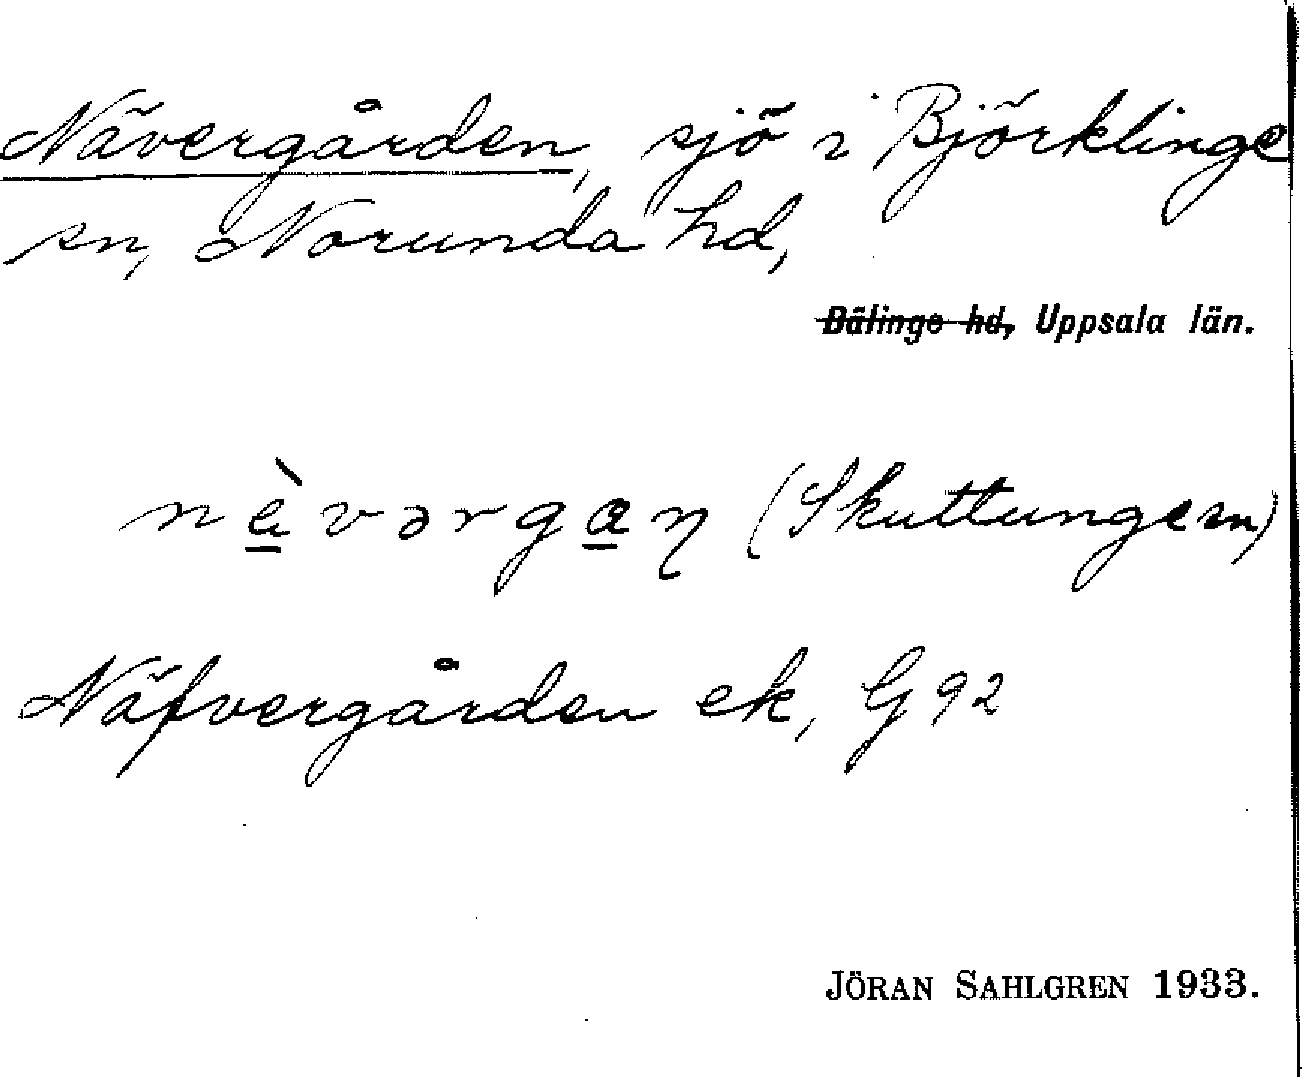 Nävergården, sjö i Björklinge
sn, Norunda hd,
Bälinge hd, Uppsala län.
nèvərgaη (Skuttunge sn)
Näfvergården ek, G 92
JÖRAN SAHLGREN 1933.